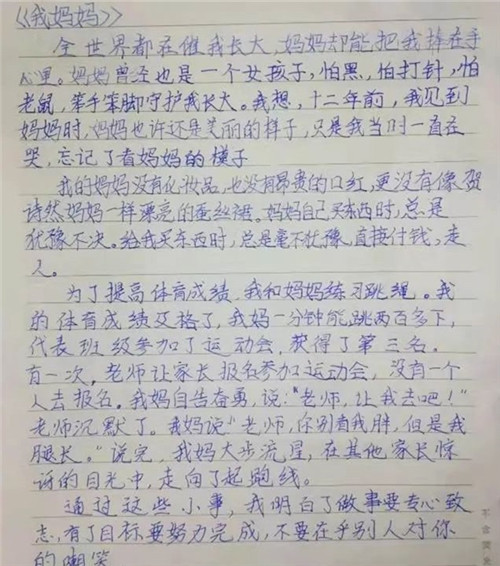 《我妈妈》
全世界都在催我长大,妈妈却能把我捧在手
心里。妈妈曾经也是一个女孩子,怕黑,怕打针,怕
老鼠,笨手笨脚守护我长大。我想,十二年前,我见到
妈妈时,妈妈也许还是美丽的样子,只是我当时一直在
哭,忘记了看妈妈的样子
我的妈妈没有化妆品,也没有昂贵的口红,更没有像贺
诗然妈妈一样漂亮的蚕丝裙。妈妈自己买东西时,总是
犹豫不决。给我买东西时,总是毫不犹豫,直接付钱,走
人。
为了提高体育成绩,我和妈妈练习跳绳。我
的体育成绩及格了,我妈一分钟能跳两百多下,
代表班级参加了运动会,获得了第三名。
有一次,老师让家长报名参加运动会,没有一个
人去报名。我妈自告奋勇,说:"老师,让我去吧!"
老师沉默了。我妈说"老师,你别看我胖,但是我
腿长。"说完,我妈大步流星,在其他家长惊
讶的目光中,走向了起跑线。
通过这些小事,我明白了做事要专心致
志,有了目标要努力完成,不要在乎别人对你
的嘲笑